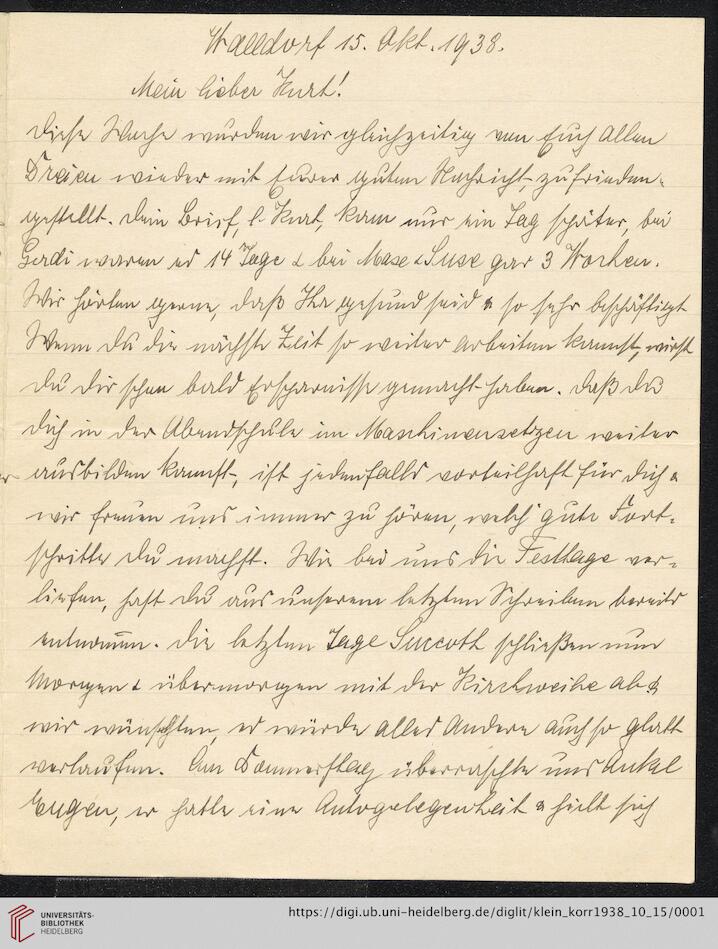 Walldorf 15. Okt. 1938.
Mein lieber Kurt!
Diese Woche wurden wir gleichzeitig von Euch allen
Dreien wieder mit Eurer guten Nachricht zufrieden-
gestellt. Dein Brief, l. Kurt, kam nur ein Tag später, bei
Gerdi waren es 14 Tage & bei Mase & Suse gar 3 Wochen.
Wir hörten gerne, daß Ihr gesund seid & so sehr beschäftigt
Wenn Du die nächste Zeit so weiter arbeiten kannst, wirst
Du Dir schon bald Ersparnisse gemacht haben. Daß Du
Dich in der Abendschule im Maschinensetzen weiter
ausbilden kannst, ist jedenfalls vorteilhaft für Dich &
wir freuen uns immer zu hören, welch' gute Fort-
schritte Du machst. Wie bei uns die Festtage ver-
liefen, hast Du aus unserem letzten Schreiben bereits
entnom̄en. Die letzten Tage Succoth schließen nun
Morgen & übermorgen mit der Kirchweihe ab &
wir wünschten, es würde alles Andere auch so glatt
verlaufen. Am Donnerstag überraschte uns Onkel
Eugen, er hatte eine Autogelegenheit & hielt sich
UNIVERSITÄTS-
BIBLIOTHEK
HEIDELBERG
https://digi.ub.uni-heidelberg.de/diglit/klein_korr1938_10_15/0001